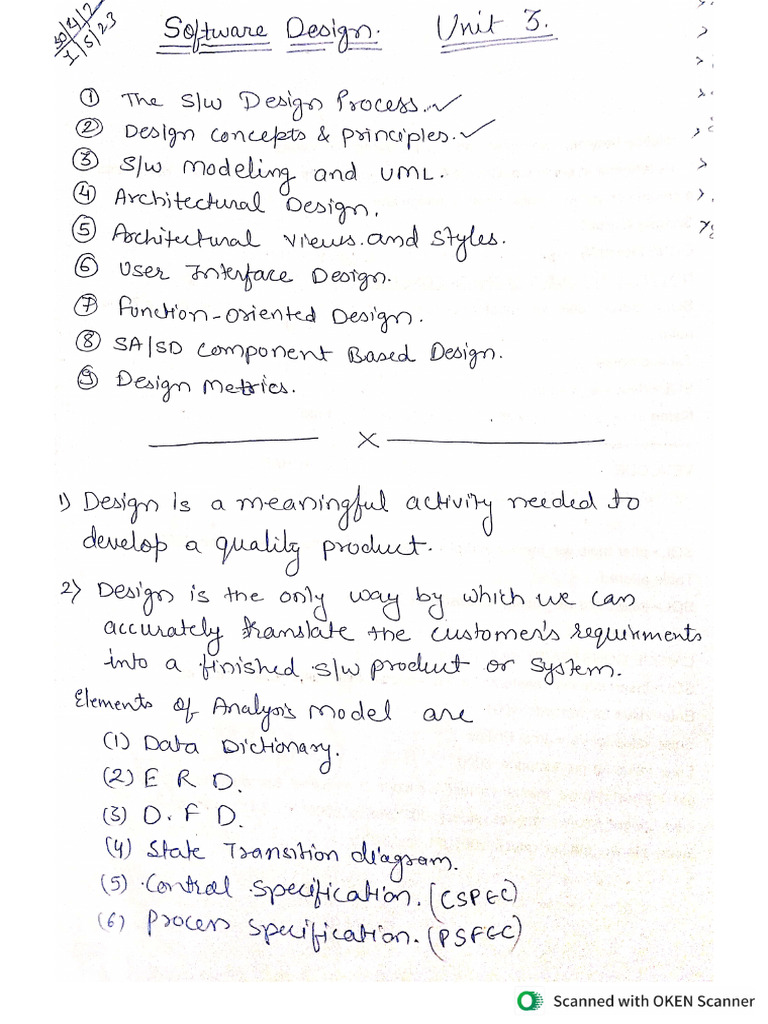 30/4/2
1/5/23
Software Design. Unit 3.
① The S/W Design Process. ✓
② Design concepts & principles. ✓
③ S/W modeling and UML.
④ Architectural Design.
⑤ Architectural views and styles.
⑥ User Interface Design.
⑦ Function-Oriented Design.
⑧ SA/SD Component Based Design.
⑨ Design Metrics.
X
1) Design is a meaningful activity needed to
develop a quality product.
2) Design is the only way by which we can
accurately translate the customer's requirments
into a finished S/W product or system.
Elements of Analysis model are
(1) Data Dictionary.
(2) E R D.
(3) D. F D.
(4) State Transition diagram.
(5) Control Specification. (CSPEC)
(6) Process Specification. (PSFEC)
Scanned with OKEN Scanner